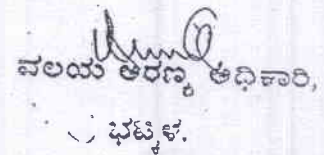 ವಲಯ ಅರಣ್ಯ ಅಧಿಕಾರಿ,
ಭಟ್ಕಳ.